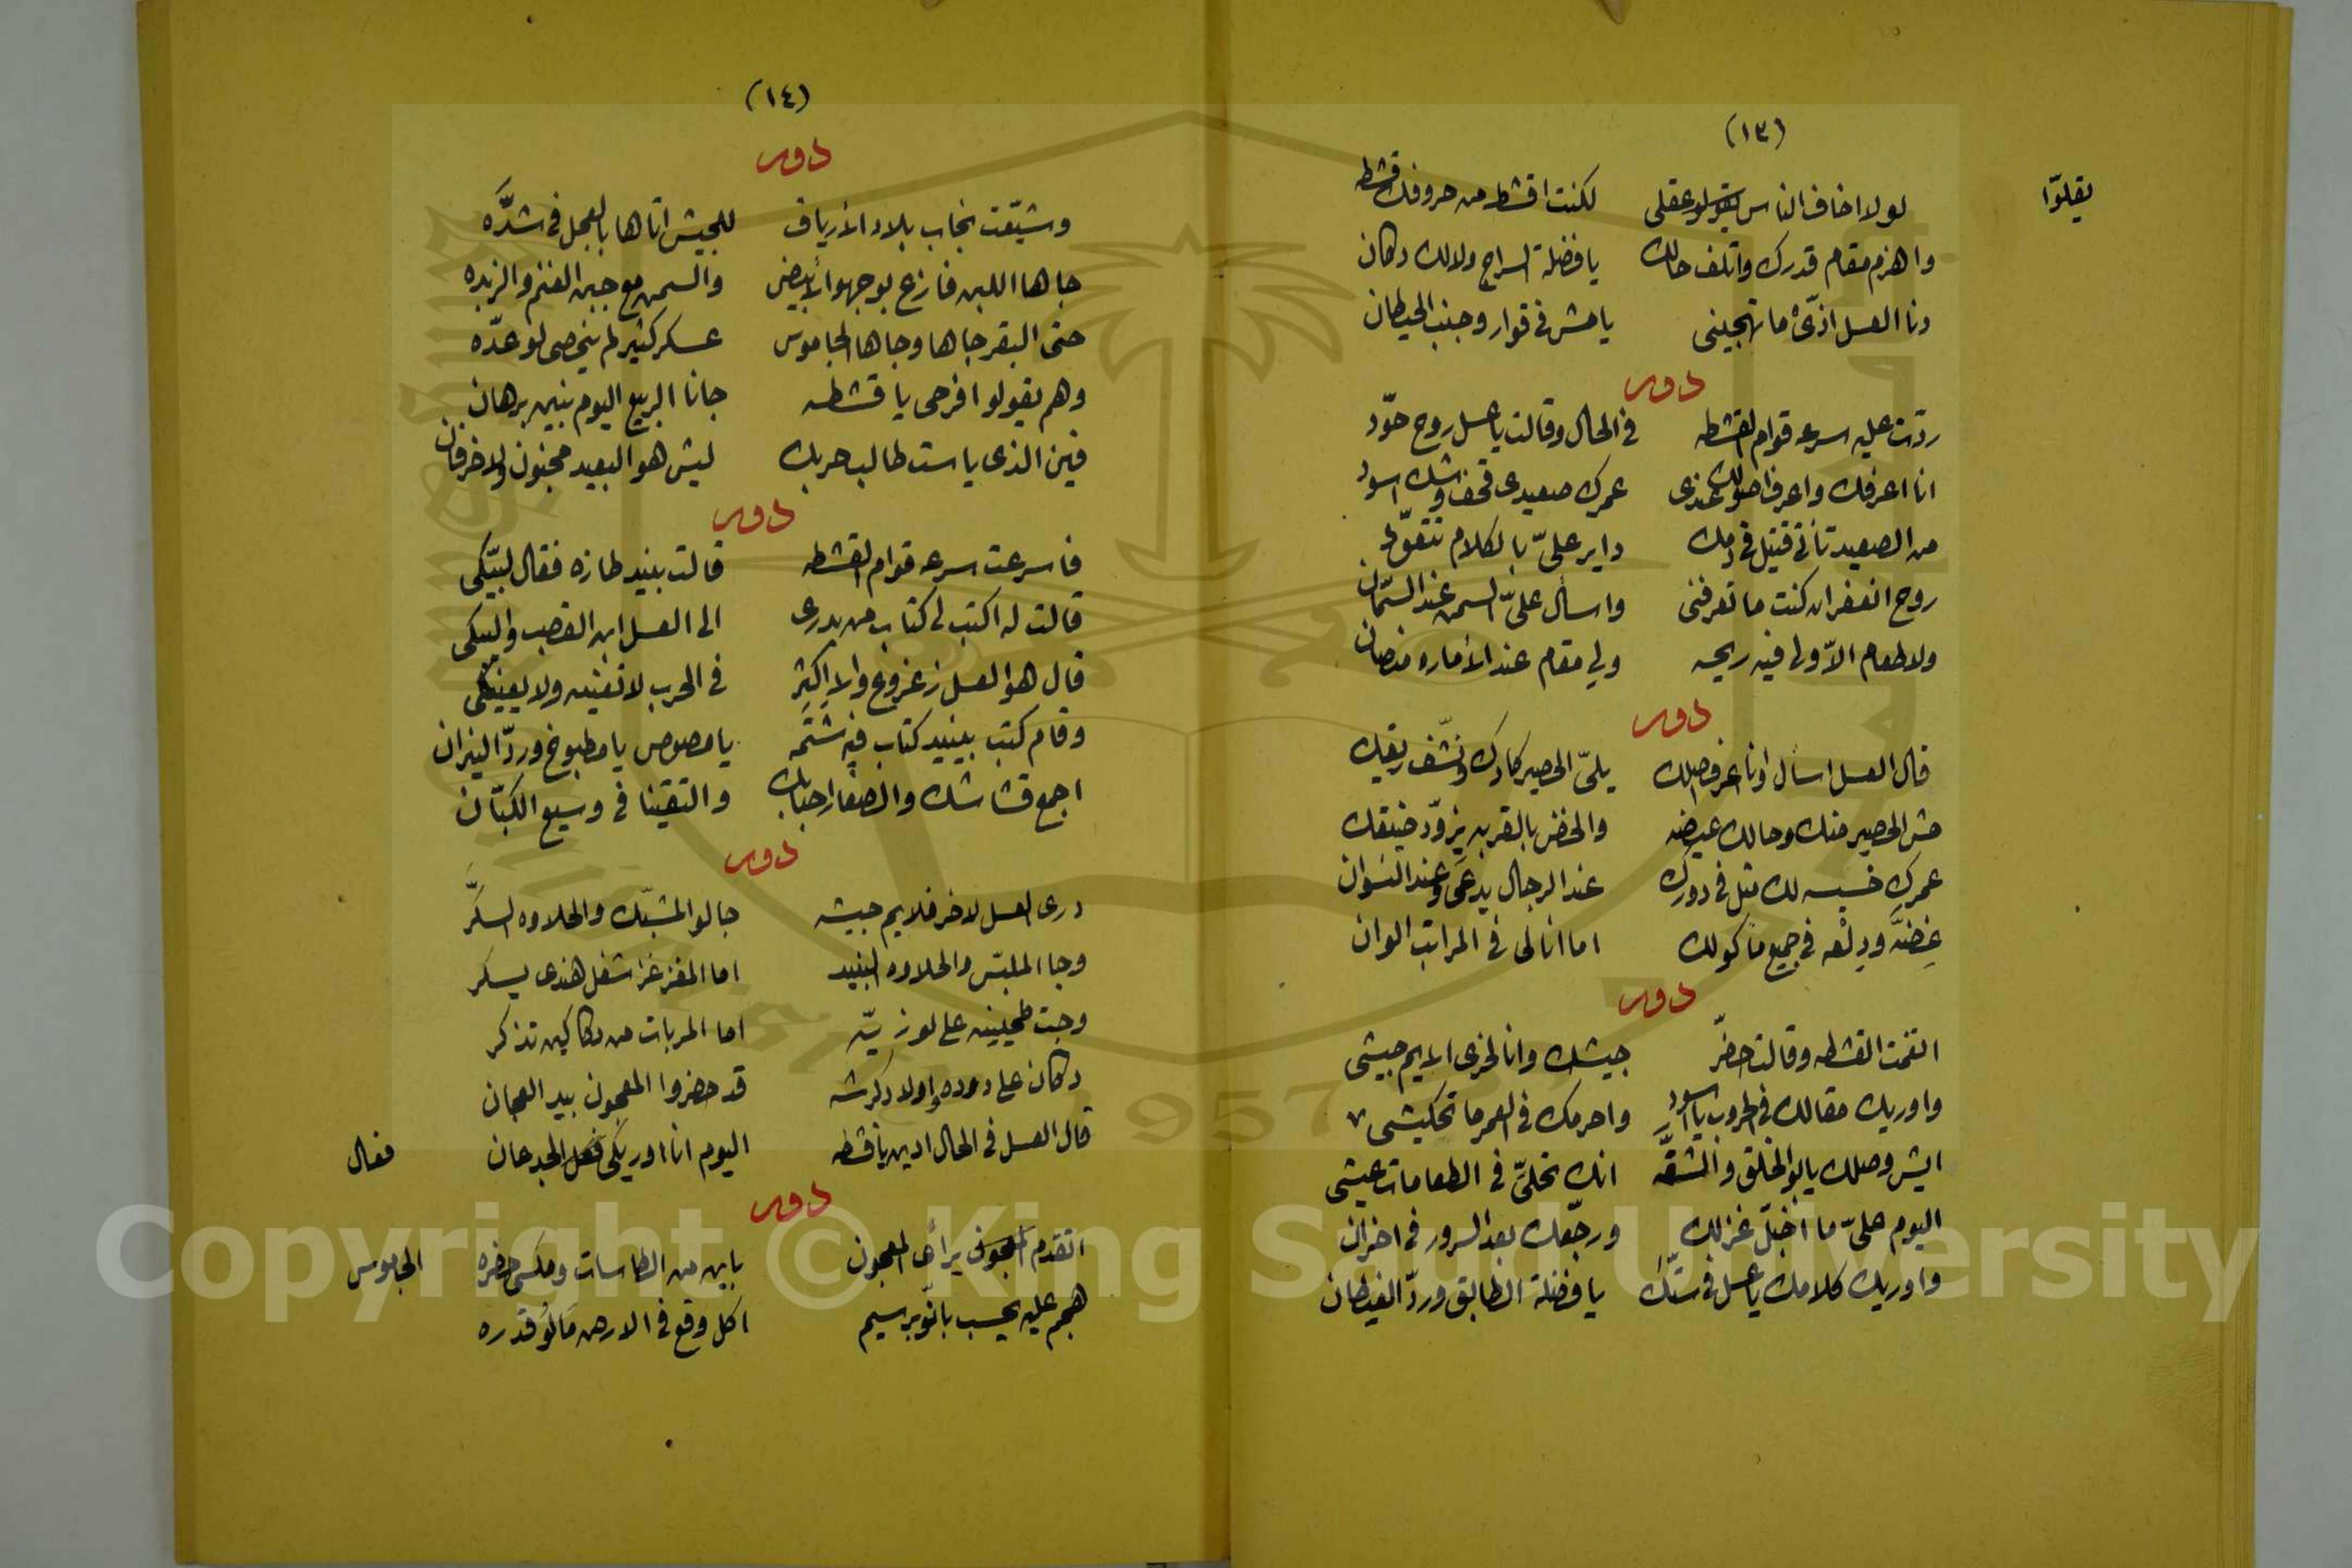 (١٣)
يقلوّا
لولا اخاف الناس يقولو عقلى لكنت اقشط من حروفك قشطه
واهزم مقام قدرك واتلف حالك يا فضلة السراج ولالك دكان
دنا العسل اذّى ما تهجينى يا مش فى قوار وجنب الحيطان
دور
ردّت عليه سرعه قوام القشطه فى الحال وقالت يا عسل روح حوّد
انا اعرفك واعرف اصولك عندى عمرك صعيدى قحف وشك اسود
من الصعيد تأتى قتيل فى دمك داير علىّ بالكلام تتقوّل
روح انعفر ان كنت ما تعرفنى واسأل علىّ السمن عند السمّان
ولا طعام الاّ ولى فيه ريحه ولى مقام عند الأماره منصان
دور
قال العسل اسأل وانا اعرف اصلك يلىّ الحصير كادك ونشّف ريقك
مش الحصير منك وحالك عيضه والخض بالقربه يزوّد ضيقك
عمرك خسيسه لك مثل فى دورك عند الرجال يدعى وعند النسوان
غِضَّه ودِلْعه فى جميع مأكولك اما انا لى فى المراتب الوان
دور
اتغمت القشطه وقالت حضّر جيشك وانا لاخرى الايم جيشى
واوريك مقالك فى الحروب يا اسود واحرمك فى العمر ما تحكيشى
ايش وصلك يا بو الخلق والشقّه انك تخلىّ فى الطعامات عيشى
اليوم علىّ ما اخبّل غزلك ورجّعك بعد السرور فى احزان
واوريك كلامك يا عسل فى ستّك يا فضلة الطالبق وردّ الغيطان
(١٤)
دور
وشيّعت نجاب بلاد الأرياف للجيش اتاها بالعجل فى شدّه
جاها اللبن فازع بوجهو الأبيض والسمن مع جبن الغنم والزبده
حتى البقر جاها وجاها الجاموس عسكر كثير لم ينحصى لو عدّه
وهم يقولو افرحى يا قشطه جانا الربيع اليوم يبين برهان
فين الذى يا ست طالب حربك ليش هو البعيد مجنون ولا خرفان
دور
فاسرعت سرعه قوام القشطه قالت بنيد طازه فقال لبيّكى
قالت له اكتب لى كتاب من بدرى الى العسل ابن القصب واليكى
قال هو العسل زغروع والا اكثر فى الحرب لا تغنيه ولا يعنيكى
وقام كتب بينيد كتاب فيه شتمه يا مصوص يا مطبوخ وردّ النيران
اجمع قشاشك والصغار احبابك والتقينا فى وسيع الكبّان
دور
درى العسل لاخر فلايم جيشه جالو المشبّك والحلاوه السكّر
وجا الملبّس والحلاوه البنيد اما المغز غز شغل هندى يسكر
وجت طحينيه على لوزيّه اما المربات من دكاكين تذكر
دكان على دوده واولاد كرشه قد حضروا المعجون بيد العجان
قال العسل فى الحال ادين يا قشطه اليوم انا اوريكى فعل الجدعان
فعال
دور
اتقدم الجبون يرأى المعجون باين من الطاسات ومكسى حضره
الجاموس
هجم عليه يحسب بانّو برسيم اكل وقع فى الارض مالو قدره
Copyright © King Saud University
1957